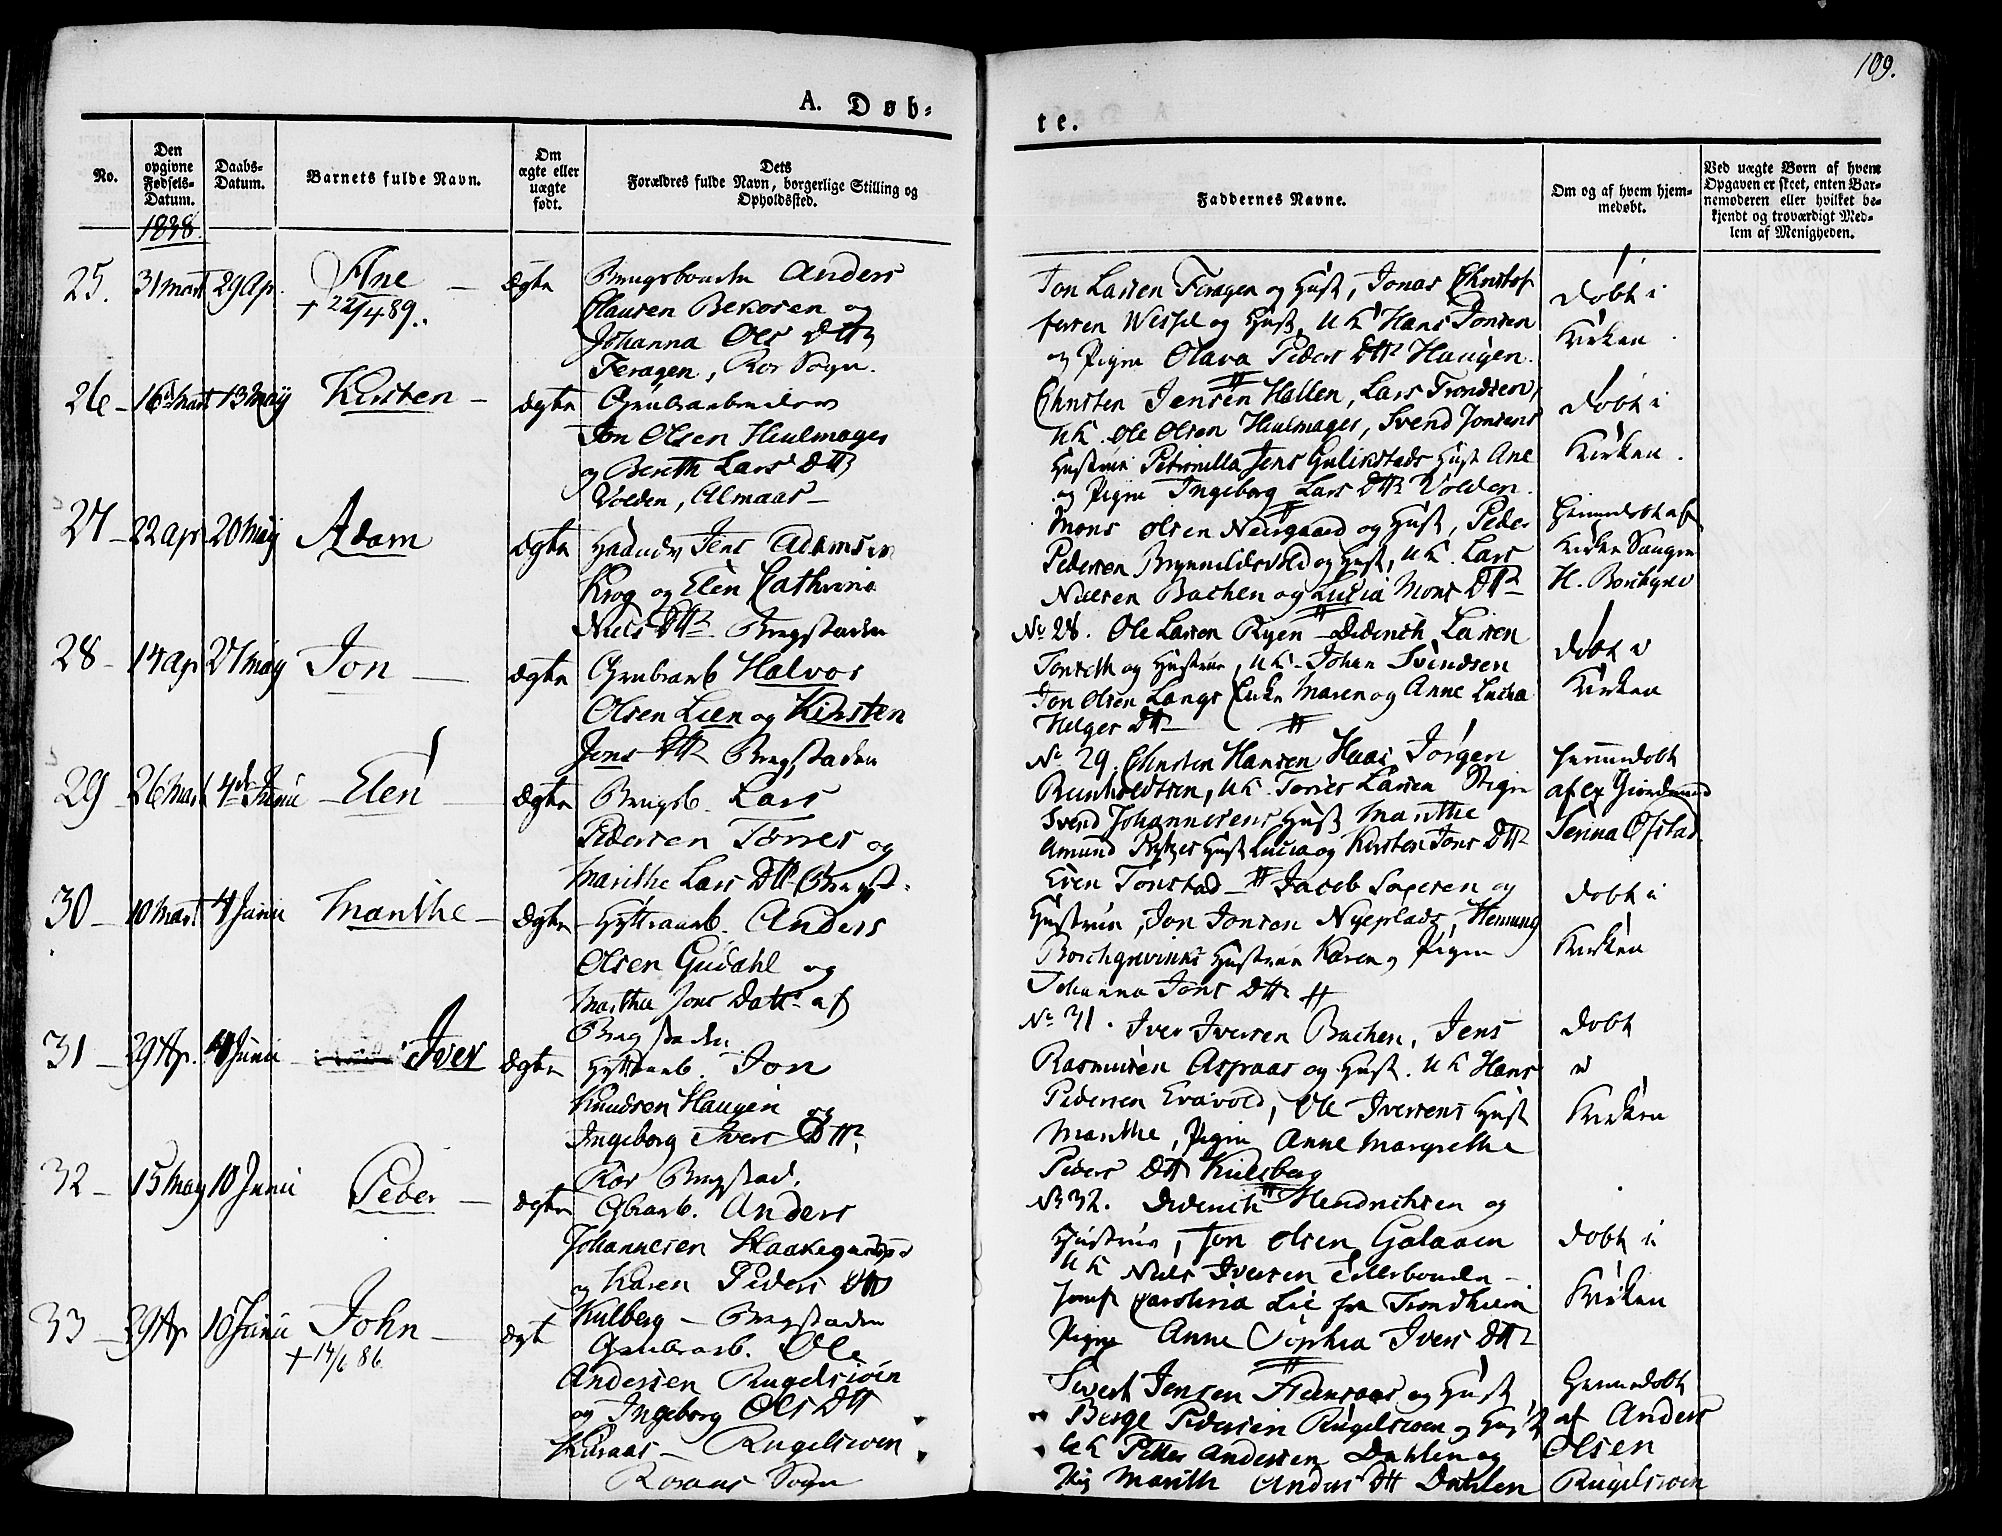 109.
A. Døb-
te.
No.
Den opgivne Fødsels-Datum.
Daabs-Datum.
Barnets fulde Navn.
Om ægte eller uægte født.
Dets Forældres fulde Navn, borgerlige Stilling og Opholdssted.
Faddernes Navne.
Om og af hvem hjemmedøbt.
Ved uægte Børn af hvem Opgaven er skeet, enten Barnemoderen eller hvilket bekjendt og troværdigt Medlem af Menigheden.
1838
25. 31 Mart 29 Ap. Ane ægte
+ 22/4 89.
Anders
Clausen Bekosen og
Johanna Ols Dtt
Feragen, Ror Sogn.
Jon Larsen Feragen og Hust, Jonas Christof
fersen Wessel og Hust, UK Hans Jonsen
og Pigen Olava Peders Dtr Haugen.
døbt i
Kirken
26 - 16 Mart 13 May Kirsten - ægte
Grubearbeider
Jon Olsen Hiulmager
og Bereth Lars Dtt
Volden, Almaas -
Christen Jensen Hallen, Lars Trondsen,
UK. Ole Olsen Hiulmager, Svend Jonsens
Hustrue Petronilla Jens Gulikstads Hust Ane
og Pigen Ingeborg Lars Dtr Volden.
døbt i
Kirken.
27 - 22 apr 20 May Adam ægte
Jens Adamsen
Krog og Elen Cathrine
Niels Dtr Bergstaden
Mons Olsen Neergaard og Hust, Peder
Pedersen Brynnildsvold og Hust, UK. Lars
Nielsen Bachen og Lucia Mons Dtr
Hjemmedøbt af
Kirke Sanger
H. Borchgrev
28 - 14 ap 27 May Jon - ægte
Grubearb Halvor
Olsen Lien og Kirsten
Jons Dtr Bergstaden
No 28. Ole Larsen Ryen - Diderich Larsen
Tonseth og Hustrue, UK. Johan Svendsen
Jon Olsen Langs Enke Maren og Anne Lucia
Helges Dtr
døbt i
Kirken
29 - 26 Mart 4de Junii - Elen ægte
Bergsb. Lars
Pedersen Torres og
Marithe Lars Dtt Bergst.
No 29. Christen Hansen Haas, Jørgen
UK. Torres Larsen
Svend Johannesens Hust Marithe
Amund Hust Lucia og Kirsten Jons Dtr
Hjemmedøbt
af ex Giordemod
Serina Ofstad.
30 - 10 Mart 4 Junii Marithe - ægte
Hytteaarb. Anders
Olsen Gudahl og
Marthe Jons Datt. af
Bergstaden
Even Tonstad - Jacob og
Hustrue, Jon Jonsen Nyeplads, Henning
Borchgrevinks Hustrue Karen, Pigen
Johanna Jons Dtr
døbt i
Kirken
31 - 29 Ap. 4 Junii - Iver ægte
Hyttearb. Jon
Knudsen Haugen og
Ingeborg Ivers Dtr,
Ror Bergstad.
No 31. Iver Iversen Bachen, Jens
Rasmusen Aspaas og Hust. UK Hans
Pedersen Evavold, Ole Iversens Hust
Marithe, Pigen Anne Margrethe
Peders Dtt Kulsberg
døbt
i
Kirken
32 - 15 May 10 Junii Peder - ægte
Anders
Johannesen
og Karen Peders Dtt
Kulberg - Bergstaden
No 32. Diderich Hendrichsen og
Hustrue, Jon Olsen Galaaen
UK Niels Iversen
Jomf Carolina Lie fra Trondhiem
Pigen Anne Sophia Ivers Dtr
døbt i
Kirken
33 - 29 Ap 10 Junii John - ægt
+ 14/6 86
Grubearb. Ole
Andersen Rugelsiøen
og Ingeborg Ols Dtt
Kuraas - Rugelsioen
Roraas Sogn
Sivert Jensen og Hust
Berge Pedersen Rugelsioen og Hust
UK Peter Andersen Dahlen og
Pig Marith Anders Dtt Dahlen
Hjemmedøbt
af Anders
Olsen
Rugelsioen